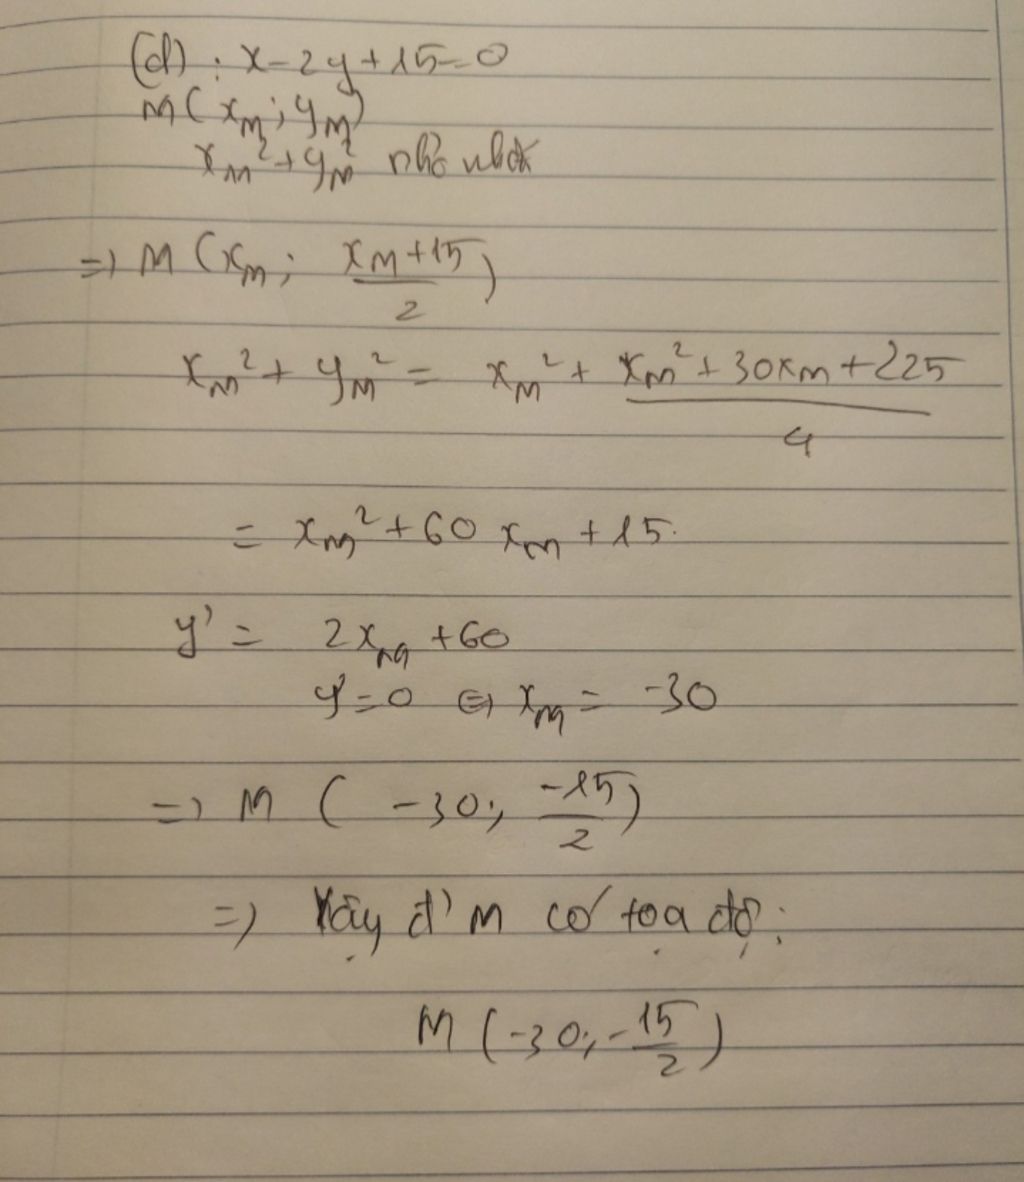 (d) : x - 2y + 15 = 0
M ( x_M ; y_M )
x_M² + y_M² nhỏ nhất
=> M (x_M ; (x_M + 15)/2 )
x_M² + y_M² = x_M² + (x_M² + 30x_M + 225)/4
= x_M² + 60 x_M + 15.
y' = 2x_M + 60
y' = 0 <=> x_M = -30
=> M ( -30 ; -15/2 )
=> Vậy đ' M có tọa độ :
M ( -30 ; -15/2 )